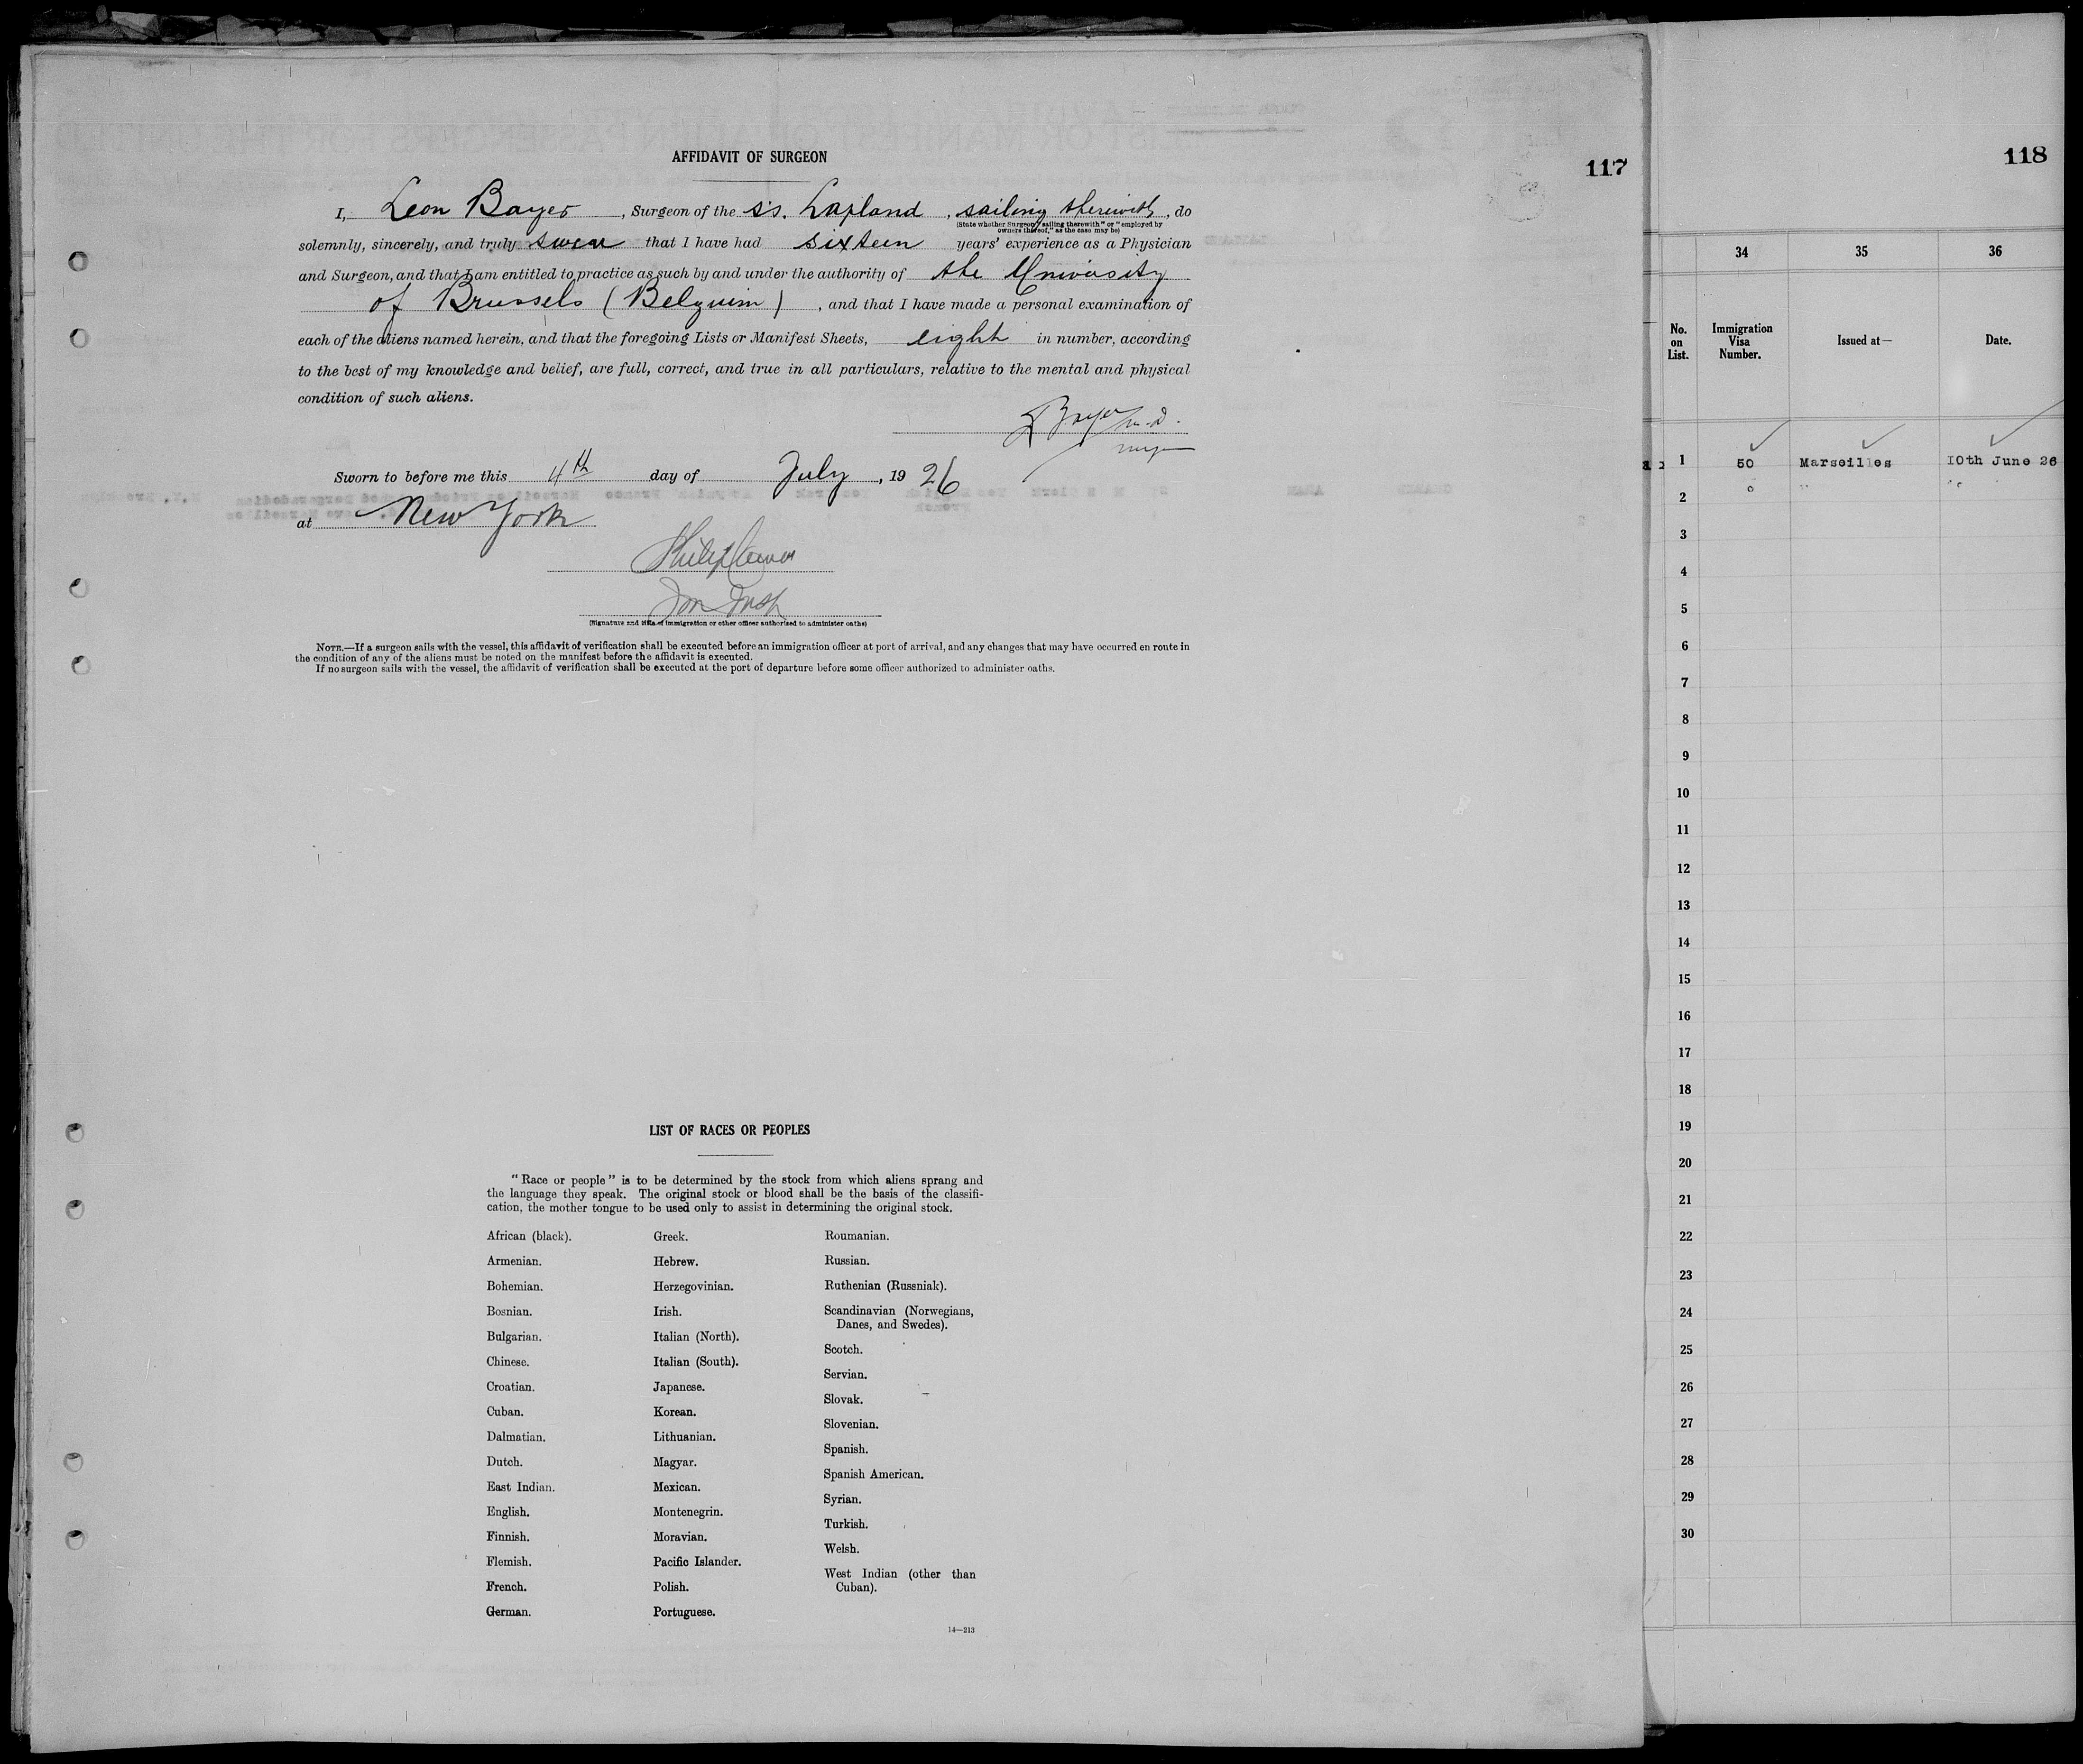 AFFIDAVIT OF SURGEON
117
I, Leon Bayer, Surgeon of the s.s. Lapland, sailing therewith, do
(State whether Surgeon "sailing therewith" or "employed by
owners thereof," as the case may be)
solemnly, sincerely, and truly swear that I have had sixteen years' experience as a Physician
and Surgeon, and that I am entitled to practice as such by and under the authority of the University
of Brussels (Belguim), and that I have made a personal examination of
each of the aliens named herein, and that the foregoing Lists or Manifest Sheets, eight in number, according
to the best of my knowledge and belief, are full, correct, and true in all particulars, relative to the mental and physical
condition of such aliens.
L Bayer M.D.
Sworn to before me this 4th day of July, 1926
at New York
(Signature and title of immigration or other officer authorized to administer oaths)
NOTE.—If a surgeon sails with the vessel, this affidavit of verification shall be executed before an immigration officer at port of arrival, and any changes that may have occurred en route in
the condition of any of the aliens must be noted on the manifest before the affidavit is executed.
If no surgeon sails with the vessel, the affidavit of verification shall be executed at the port of departure before some officer authorized to administer oaths.
LIST OF RACES OR PEOPLES
"Race or people" is to be determined by the stock from which aliens sprang and
the language they speak. The original stock or blood shall be the basis of the classifi-
cation, the mother tongue to be used only to assist in determining the original stock.
African (black).
Armenian.
Bohemian.
Bosnian.
Bulgarian.
Chinese.
Croatian.
Cuban.
Dalmatian.
Dutch.
East Indian.
English.
Finnish.
Flemish.
French.
German.
Greek.
Hebrew.
Herzegovinian.
Irish.
Italian (North).
Italian (South).
Japanese.
Korean.
Lithuanian.
Magyar.
Mexican.
Montenegrin.
Moravian.
Pacific Islander.
Polish.
Portuguese.
Roumanian.
Russian.
Ruthenian (Russniak).
Scandinavian (Norwegians,
Danes, and Swedes).
Scotch.
Servian.
Slovak.
Slovenian.
Spanish.
Spanish American.
Syrian.
Turkish.
Welsh.
West Indian (other than
Cuban).
14—213
118
34 35 36
No.
on
List.
Immigration
Visa
Number.
Issued at—
Date.
1 50 Marseilles 10th June 26
2
3
4
5
6
7
8
9
10
11
12
13
14
15
16
17
18
19
20
21
22
23
24
25
26
27
28
29
30